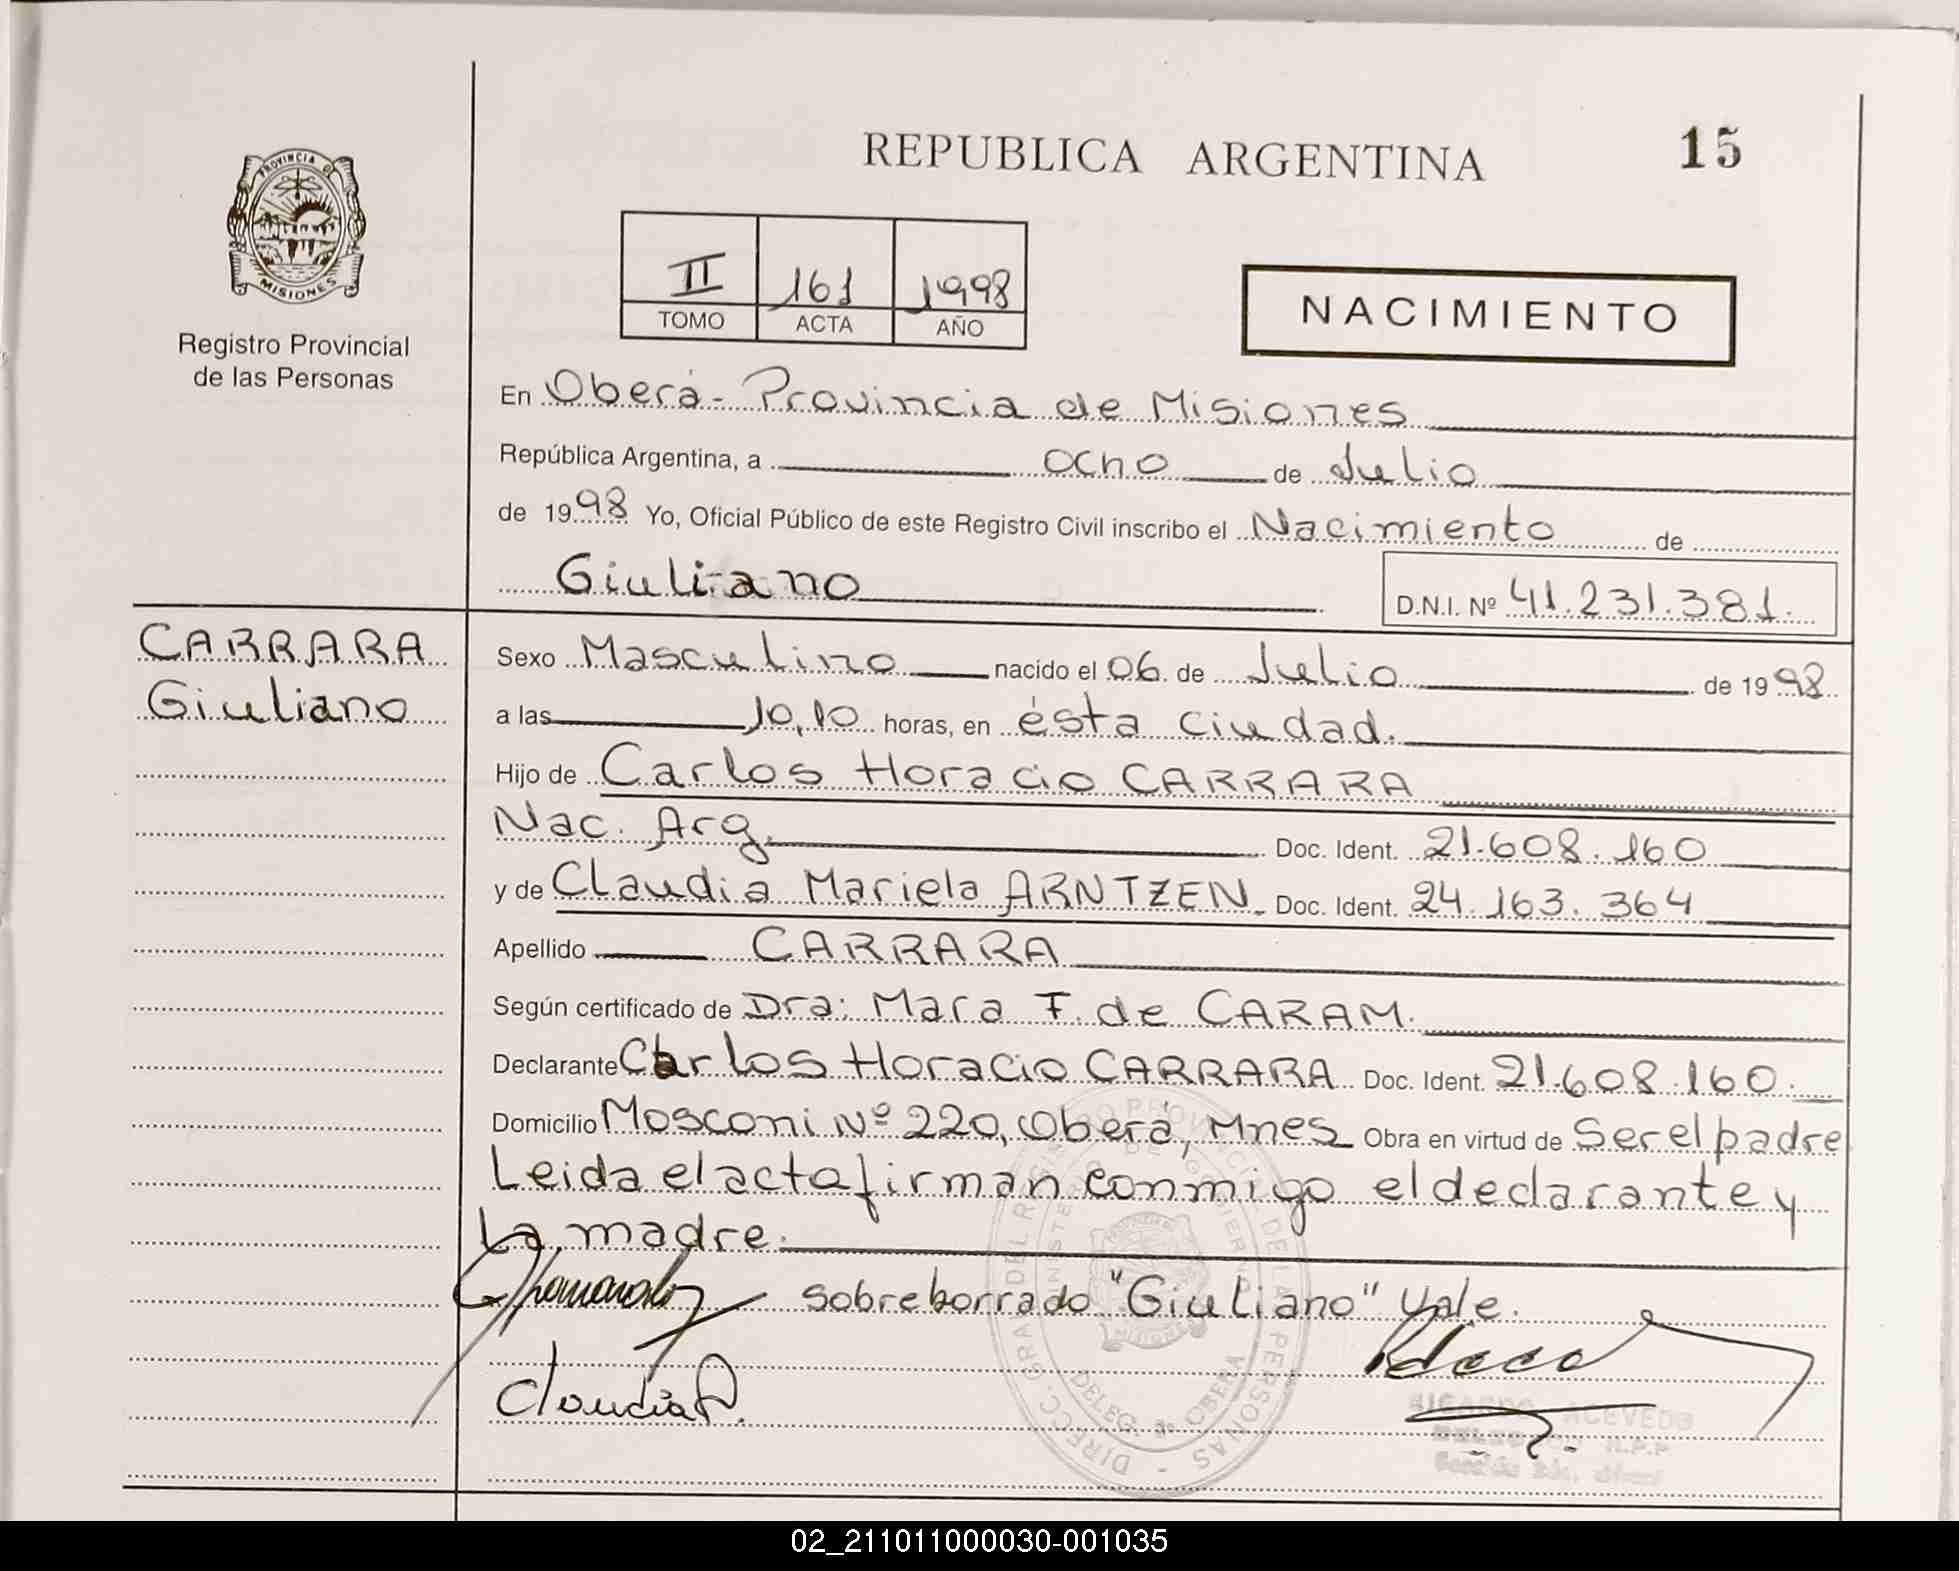 REPUBLICA ARGENTINA
15
PROVINCIA DE
MISIONES
Registro Provincial
de las Personas
II 161 1998
TOMO ACTA AÑO
NACIMIENTO
En Oberá - Provincia de Misiones
República Argentina, a ocho de Julio
de 1998 Yo, Oficial Público de este Registro Civil inscribo el Nacimiento de
Giuliano
D.N.I. Nº 41.231.381.
CARRARA
Giuliano
Sexo Masculino nacido el 06 de Julio de 1998
a las 10,10 horas, en ésta ciudad.
Hijo de Carlos Horacio CARRARA
Nac. Arg. Doc. Ident. 21.608.160
y de Claudia Mariela ARNTZEN. Doc. Ident. 24.163.364
Apellido CARRARA
Según certificado de Dra: Mara F. de CARAM.
Declarante Carlos Horacio CARRARA Doc. Ident. 21.608.160.
Domicilio Mosconi Nº 220, Oberá, Mnes Obra en virtud de Ser el padre
Leida el acta firman conmigo el declarante y
La madre.
sobreborrado "Giuliano" Vale.
Claudia A.
DIRECC. GRAL. DEL REGISTRO PROVINCIAL DE LAS PERSONAS
MINISTERIO DE GOBIERNO
MISIONES
DELEG. 3ª OBERA
RICARDO ACEVEDO
R.P.P
02_211011000030-001035